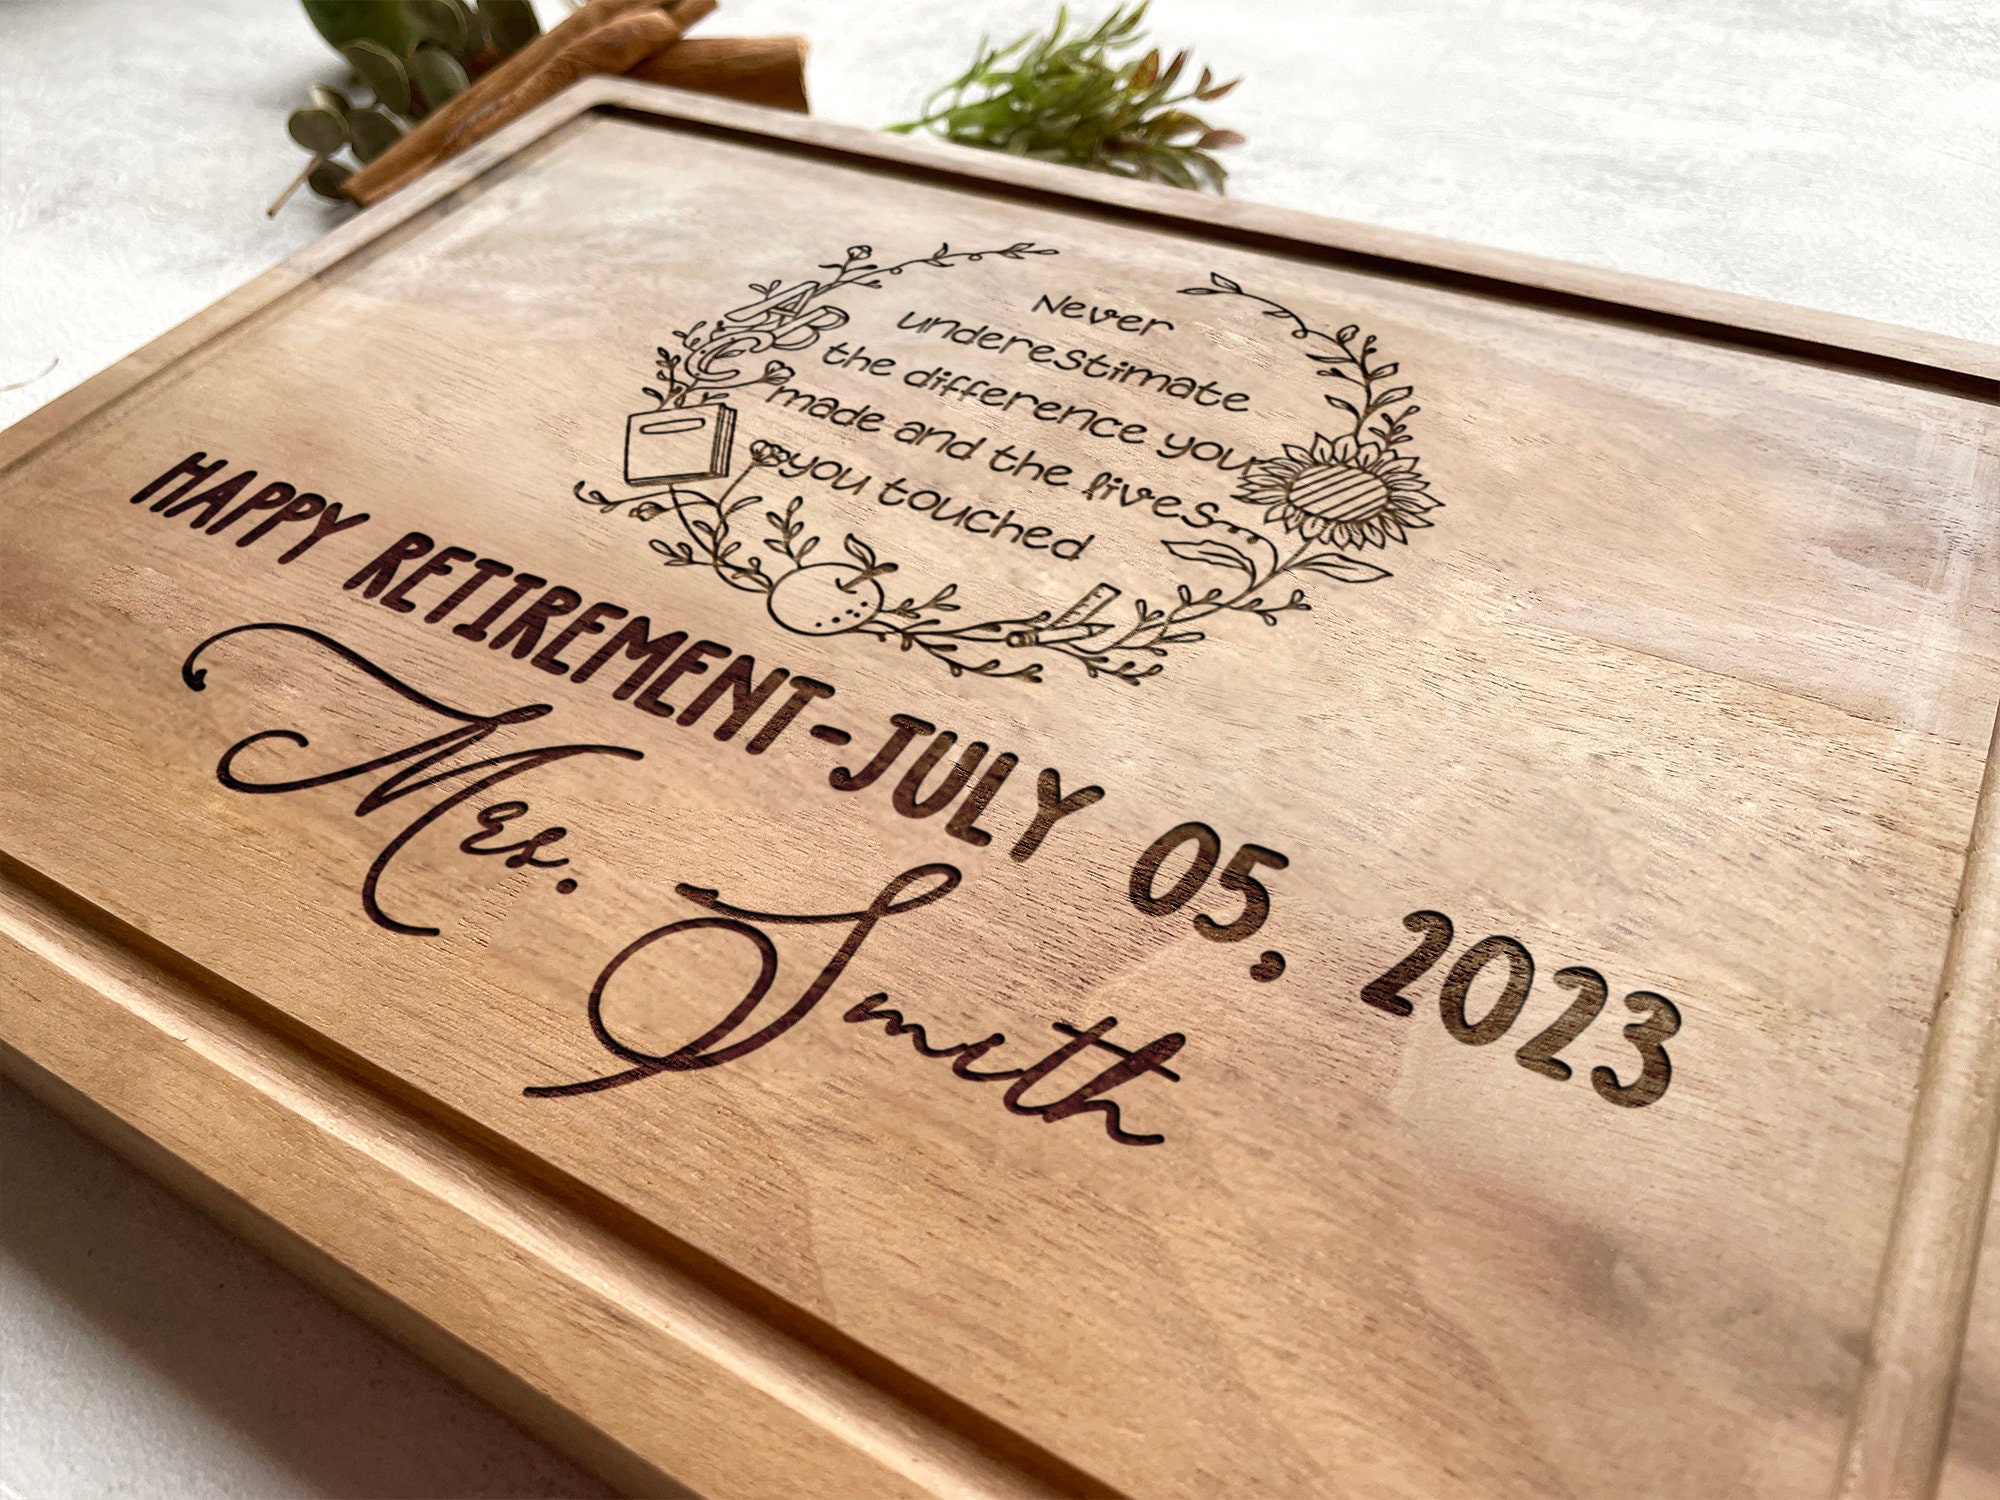 Never
underestimate
the difference you
made and the lives
you touched
ABC
HAPPY RETIREMENT-JULY 05, 2023
Mrs. Smith